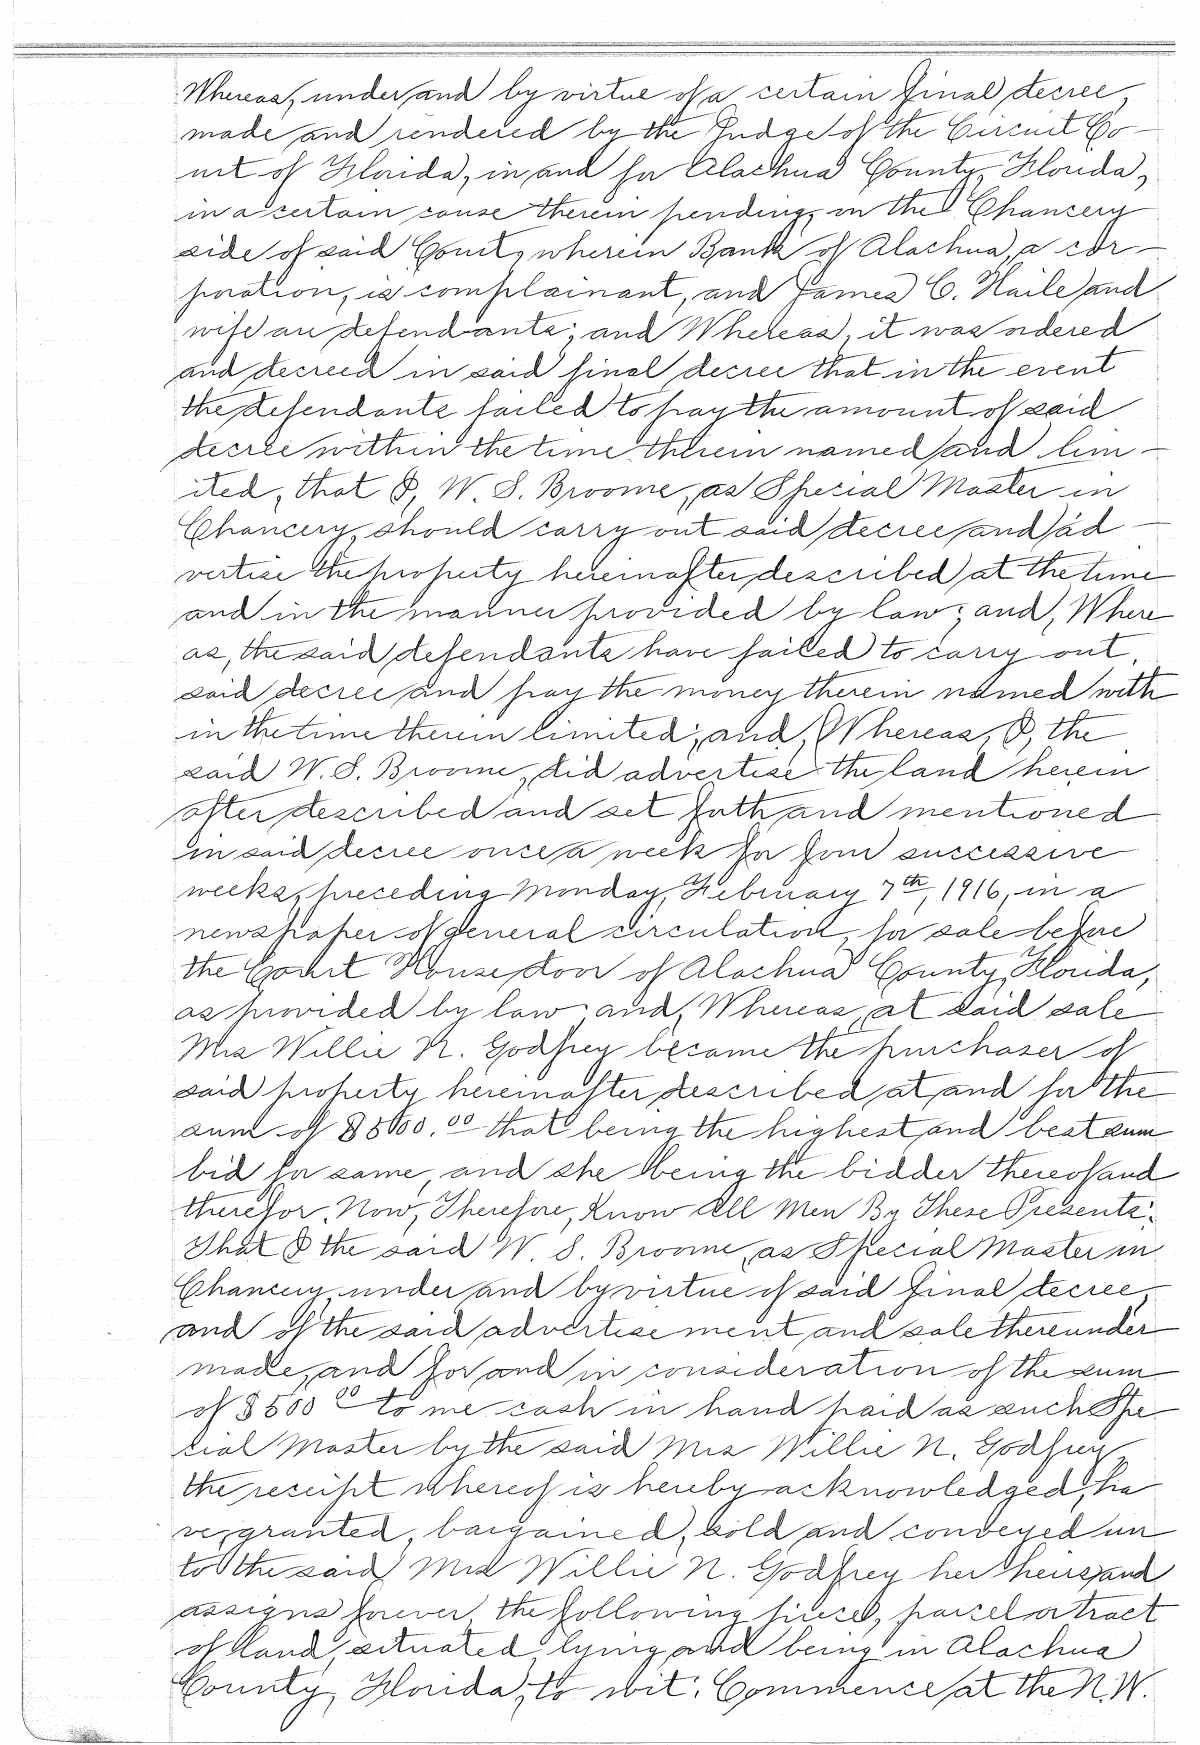 Whereas, under and by virtue of a certain final decree,
made and rendered by the Judge of the Circuit Co-
urt of Florida, in and for Alachua County, Florida,
in a certain cause therein pending, on the Chancery
side of said Court, wherein Bank of Alachua, a cor-
poration, is complainant, and James C. Haile and
wife are defendants; and Whereas, it was ordered
and decreed in said final decree that in the event
the defendants failed to pay the amount of said
decree within the time therein named and lim-
ited, that I, W. S. Broome, as Special Master in
Chancery, should carry out said decree and ad-
vertise the property hereinafter described at the time
and in the manner provided by law; and, Where
as, the said defendants have failed to carry out
said decree and pay the money therein named with
in the time therein limited; and, Whereas, I, the
said W. S. Broome, did advertise the land herein
after described and set forth and mentioned
in said decree once a week for four successive
weeks, preceding Monday, February 7th, 1916, in a
newspaper of general circulation, for sale before
the Court House door of Alachua County, Florida,
as provided by law; and, Whereas, at said sale
Mrs Willie N. Godfrey became the purchaser of
said property hereinafter described at and for the
sum of $500.00 that being the highest and best sum
bid for same, and she being the bidder thereof and
therefor. Now, Therefore, Know All Men By These Presents:
That I the said W. S. Broome, as Special Master in
Chancery, under and by virtue of said final decree,
and of the said advertisement and sale thereunder
made, and for and in consideration of the sum
of $500 00 to me cash in hand paid as such Spe
cial Master by the said Mrs Willie N. Godfrey,
the receipt whereof is hereby acknowledged, ha
ve, granted, bargained, sold and conveyed un
to the said Mrs Willie N. Godfrey her heirs, and
assigns forever, the following piece, parcel or tract
of land, situated, lying and being in Alachua
County, Florida, to wit: Commence at the N.W.